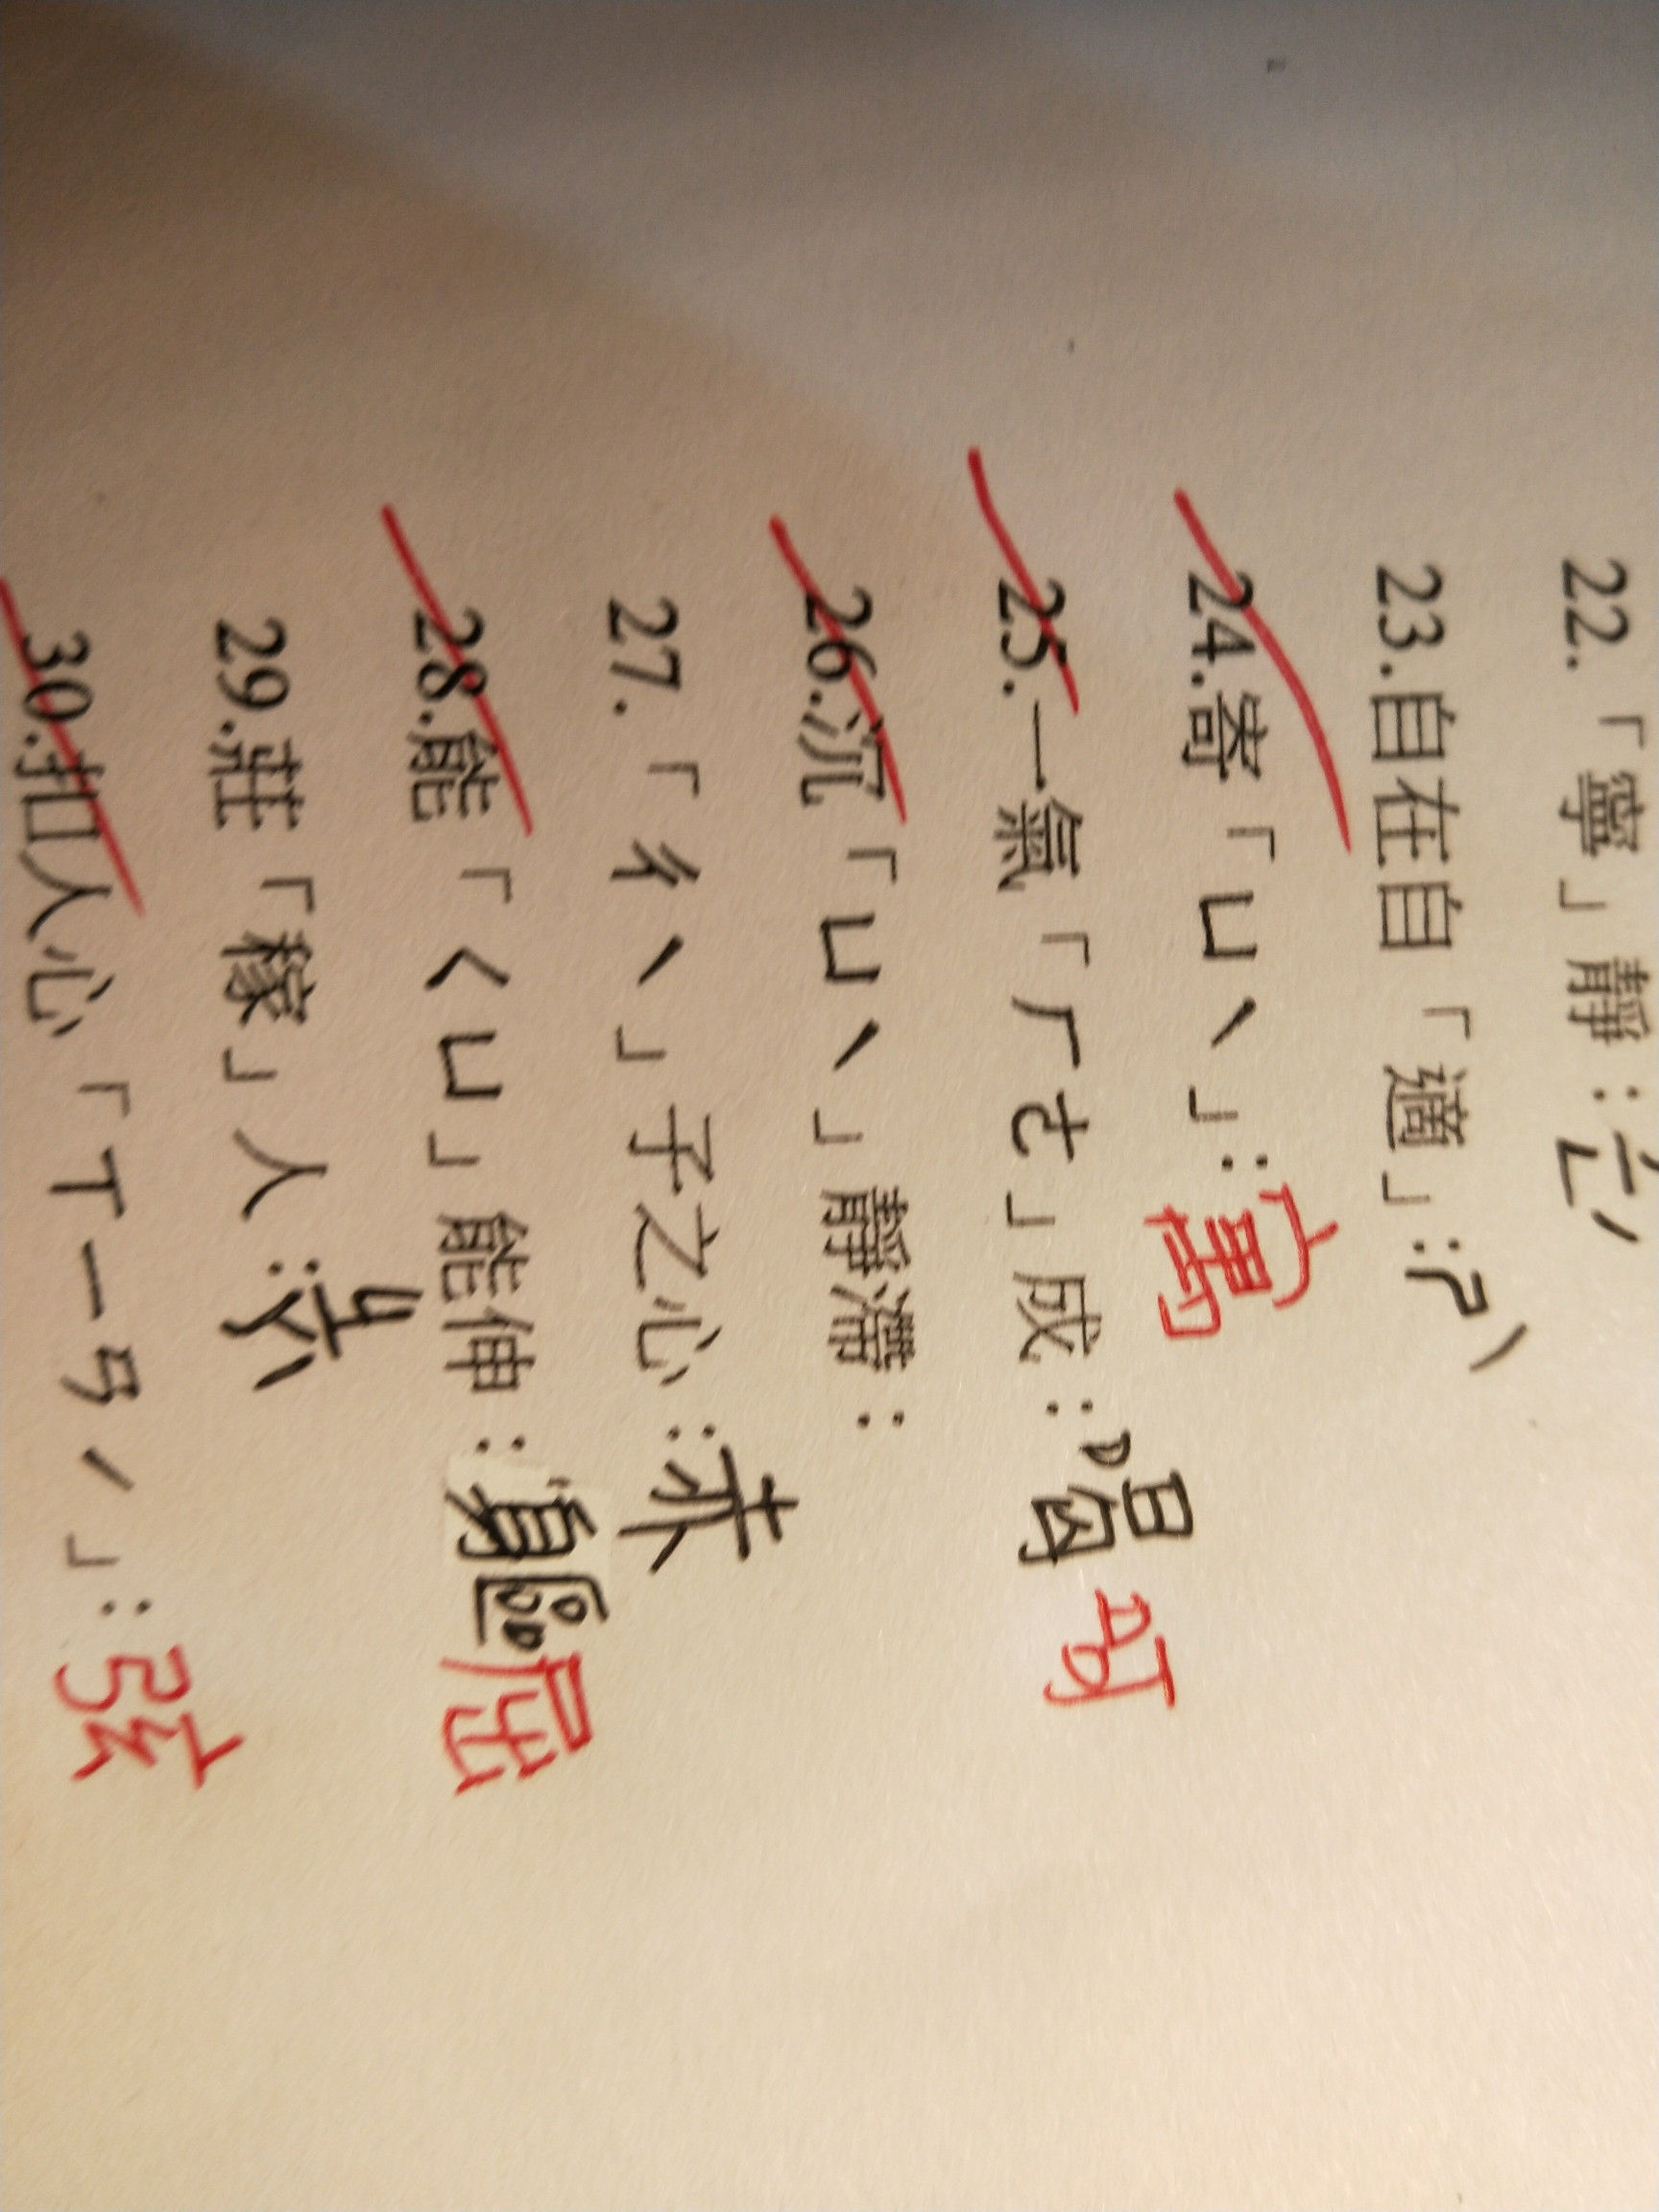 22.「寧」靜：
23.自在自「適」：ㄕˋ
24.寄「ㄩˋ」：寓
25.一氣「ㄏㄜ」成：喝 呵
26.沉「ㄩˋ」靜滯：
27.「ㄔˋ」子之心：赤
28.能「ㄑㄩ」能伸：軀 屈
29.莊「稼」人：ㄐㄧㄚˋ
30.扣人心「ㄒㄧㄢˊ」：弦